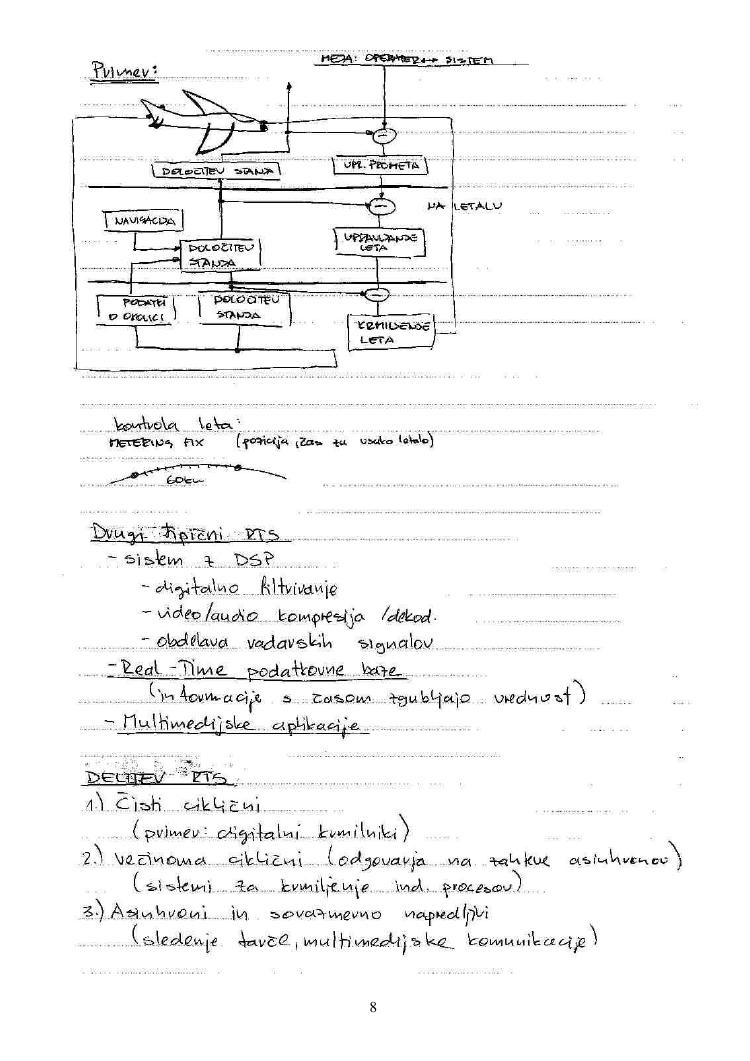 Primer:
MEJA: OPERATER ↔ SISTEM
DOLOČITEV STANJA
UPR. PROMETA
NA LETALU
NAVIGACIJA
DOLOČITEV
STANJA
UPRAVLJANJE
LETA
PODATKI
O OKOLICI
DOLOČITEV
STANJA
KRMILJENJE
LETA
kontrola leta:
METERING FIX (pozicija, čas za vsako letalo)
60km
Drugi tipični RTS
- sistem z DSP
- digitalno filtriranje
- video/audio kompresija /dekod.
- obdelava radarskih signalov
- Real-Time podatkovne baze
(informacije s časom zgubljajo vrednost)
- Multimedijske aplikacije
DELITEV RTS
1.) Čisti ciklični
(primer: digitalni krmilniki)
2.) večinoma ciklični (odgovarja na zahteve asinhronov)
(sistemi za krmiljenje ind. procesov)
3.) Asinhroni in sorazmerno napredljivi
(sledenje tarče, multimedijske komunikacije)
8